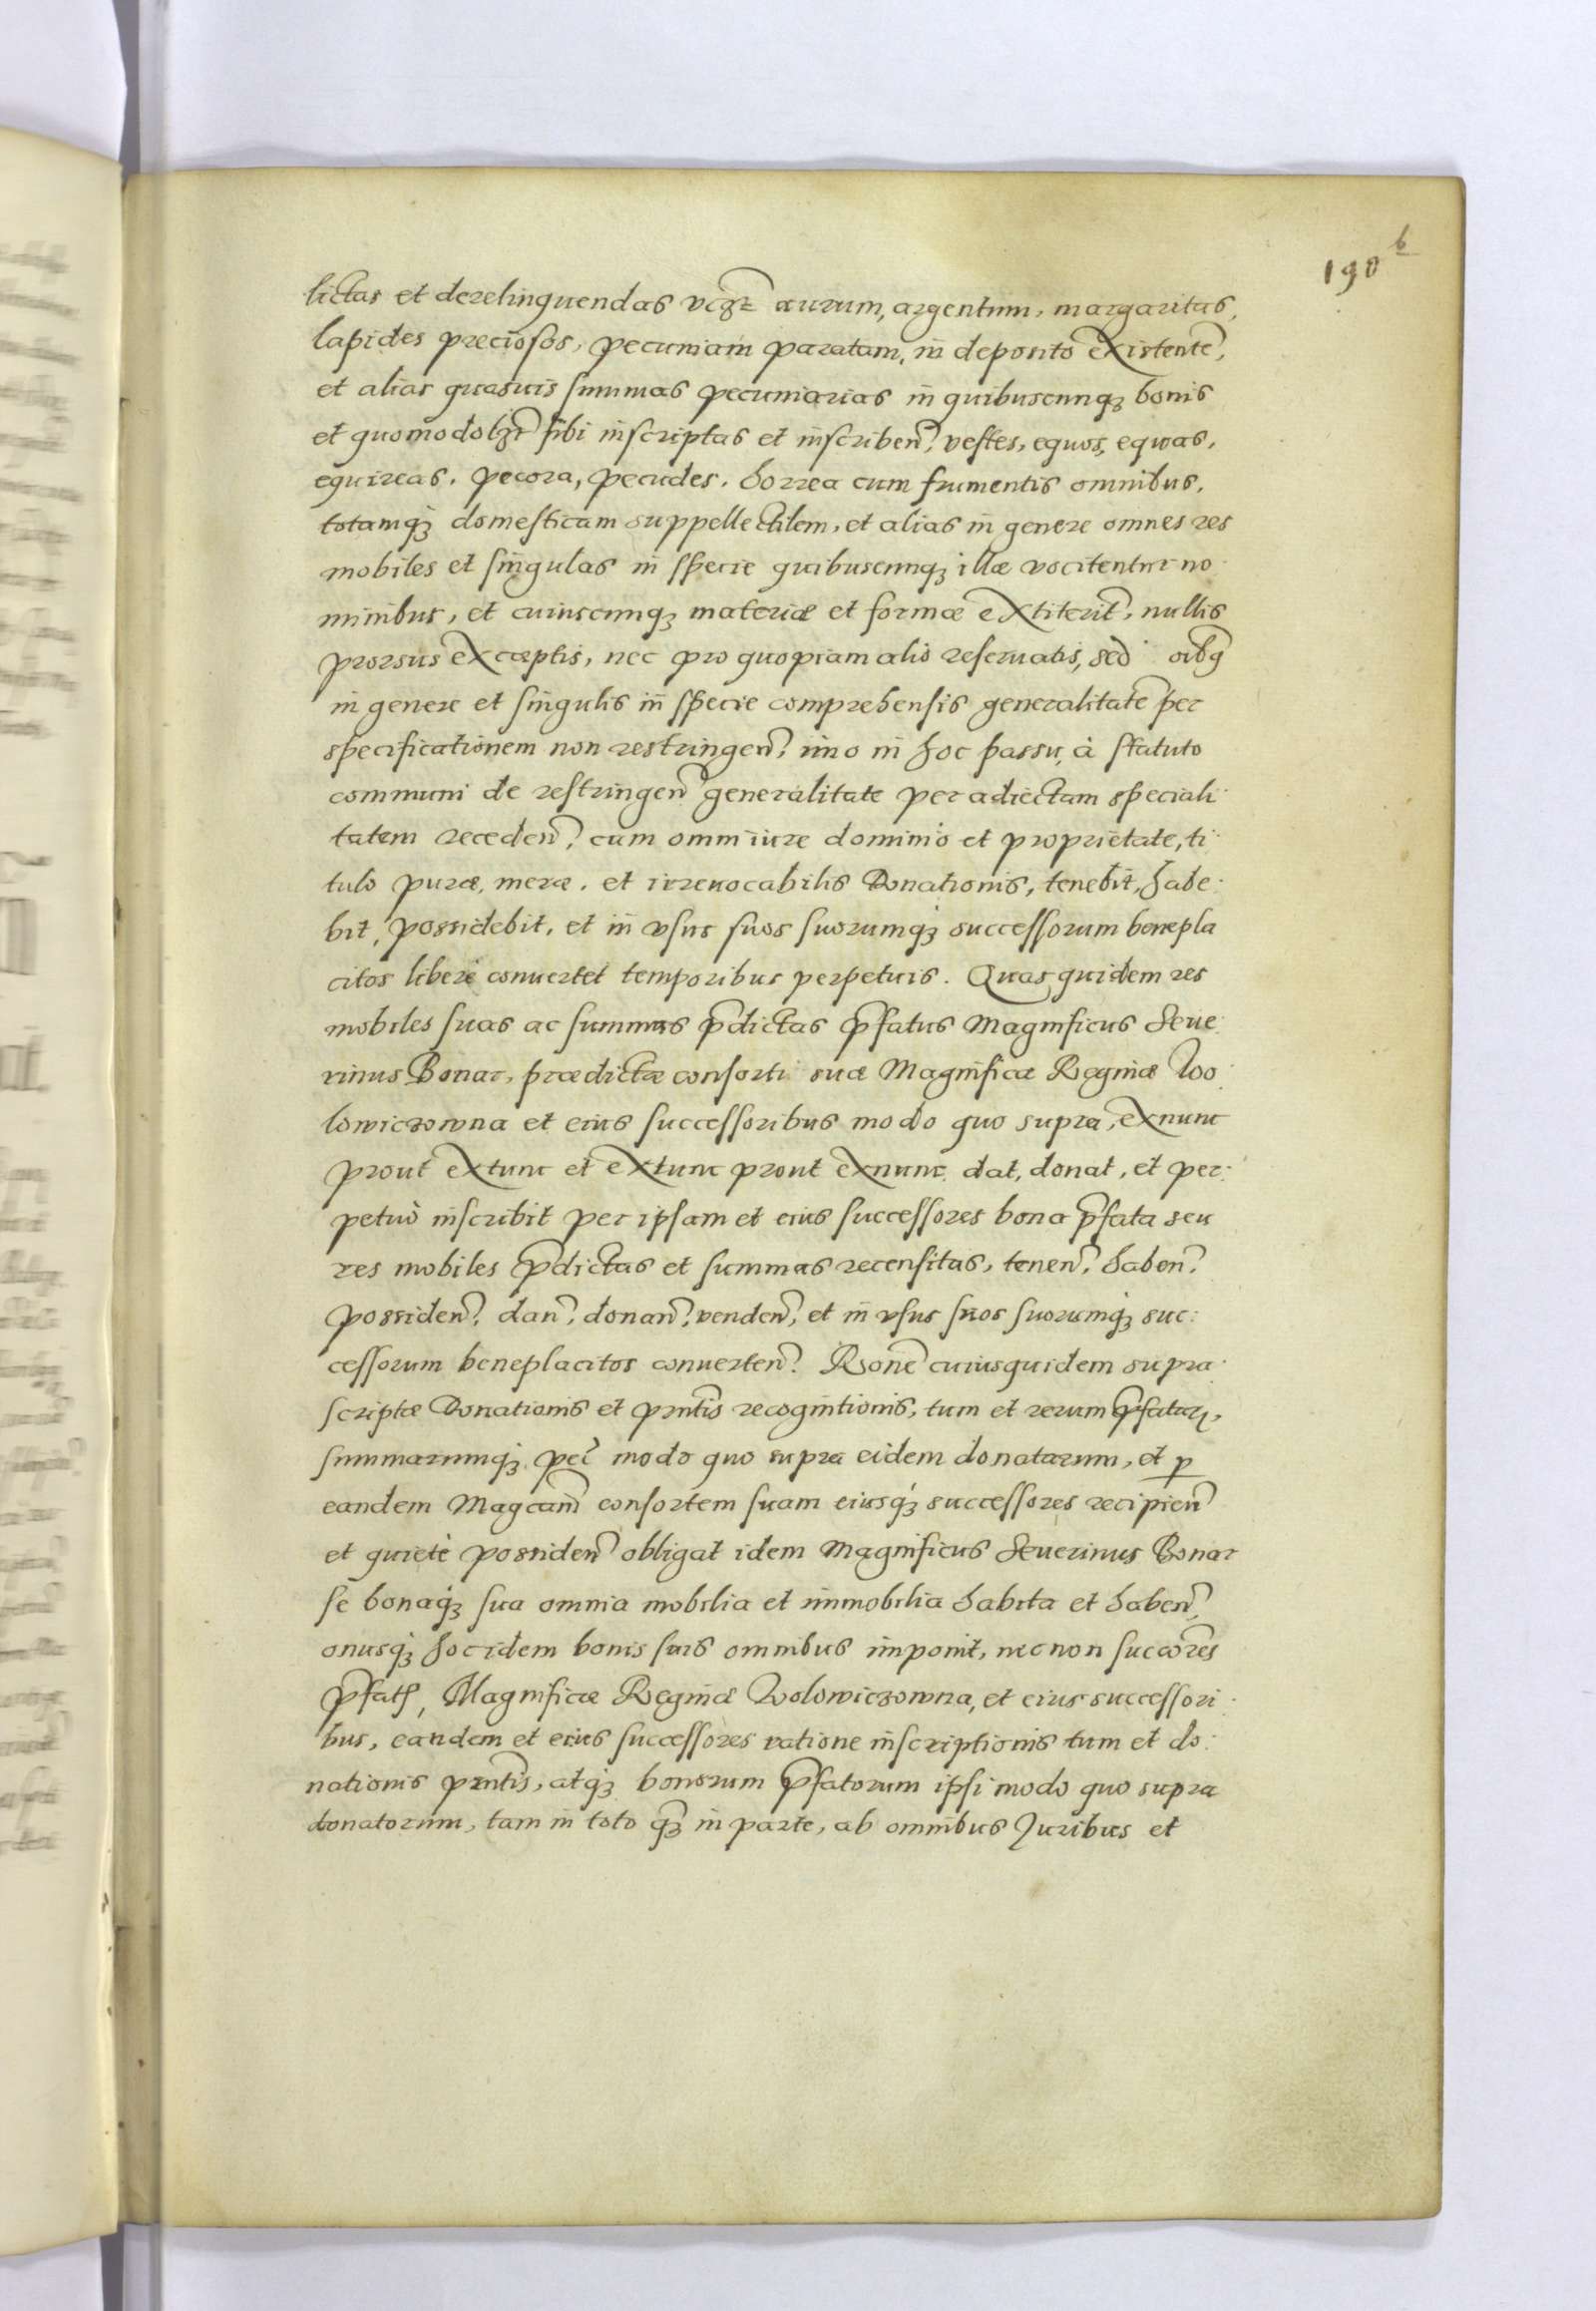 190 b
lictas et derelinquendas vcgt aurum, argentum, margaritas,
lapides preciosos, pecuniam paratam, in deposito existentē,
et alias quasuis summas pecuniarias in quibuscunqꝫ bonis
et quomodolꝫt sibi inscriptas et inscriben̄, vestes, equos, equas,
equireas, pecora, pecudes, horrea cum frumentis omnibus,
totamqꝫ domesticam suppellectilem, et alias in genere omnes res
mobiles et singulas in specie quibuscunqꝫ illæ vocitentur no
minibus, et cuiuscunqꝫ materiæ et formæ extiterit̄, nullis
prorsus excæptis, nec pro quopiam alio reseruatis, sed oibꝯ
in genere et singulis in specie comprehensis generalitatē per
specificationem non restringen̄, imo in hoc passu, à statuto
communi de restringen̄ generalitate per adiectam speciali
tatem receden̄, cum omni iure dominio et proprietate, ti
tulo puræ, meræ, et irreuocabilis Donationis, tenebit, habe
bit, possidebit, et in vsus suos suorumqꝫ successorum benepla
citos liberè conuertet temporibus perpetuis. Quas quidem res
mobiles suas ac summas p̄dictas p̄fatus Magnificus Seue
rinus Bonar, prædictæ consorti suæ Magnificæ Reginæ Wo
lowiczowna et eius successoribus modo quo supra, exnunc
prout extunc et extunc prout exnunc dat, donat, et per
petuò inscribit per ipsam et eius successores bona p̄fata seu
res mobiles p̄dictas et summas recensitas, tenen̄, haben̄,
possiden̄, dan̄, donan̄, venden̄, et in vsus suos suorumqꝫ suc
cessorum beneplacitos conuerten̄. Rōne cuiusquidem supra
scriptæ Donationis et p̄ntis recognitionis, tum et rerum p̄fatarꝝ,
summarumqꝫ pec̄ modo quo supra eidem donatarum, et ꝑ
eandem Magcam̄ consortem suam eiusqꝫ successores recipien̄
et quietè possiden̄ obligat idem Magnificus Seuerinus Bonar
se bonaqꝫ sua omnia mobilia et immobilia habita et haben̄,
onusqꝫ hoc idem bonis suis omnibus imponit, nec non succōres
p̄fatꝭ, Magnificæ Reginæ Wolowiczowna, et eius successori
bus, eandem et eius successores ratione inscriptionis tum et do
nationis p̄ntis, atqꝫ bonorum p̄fatorum ipsi modo quo supra
donatorum, tam in toto qꝫ in parte, ab omnibus Juribus et